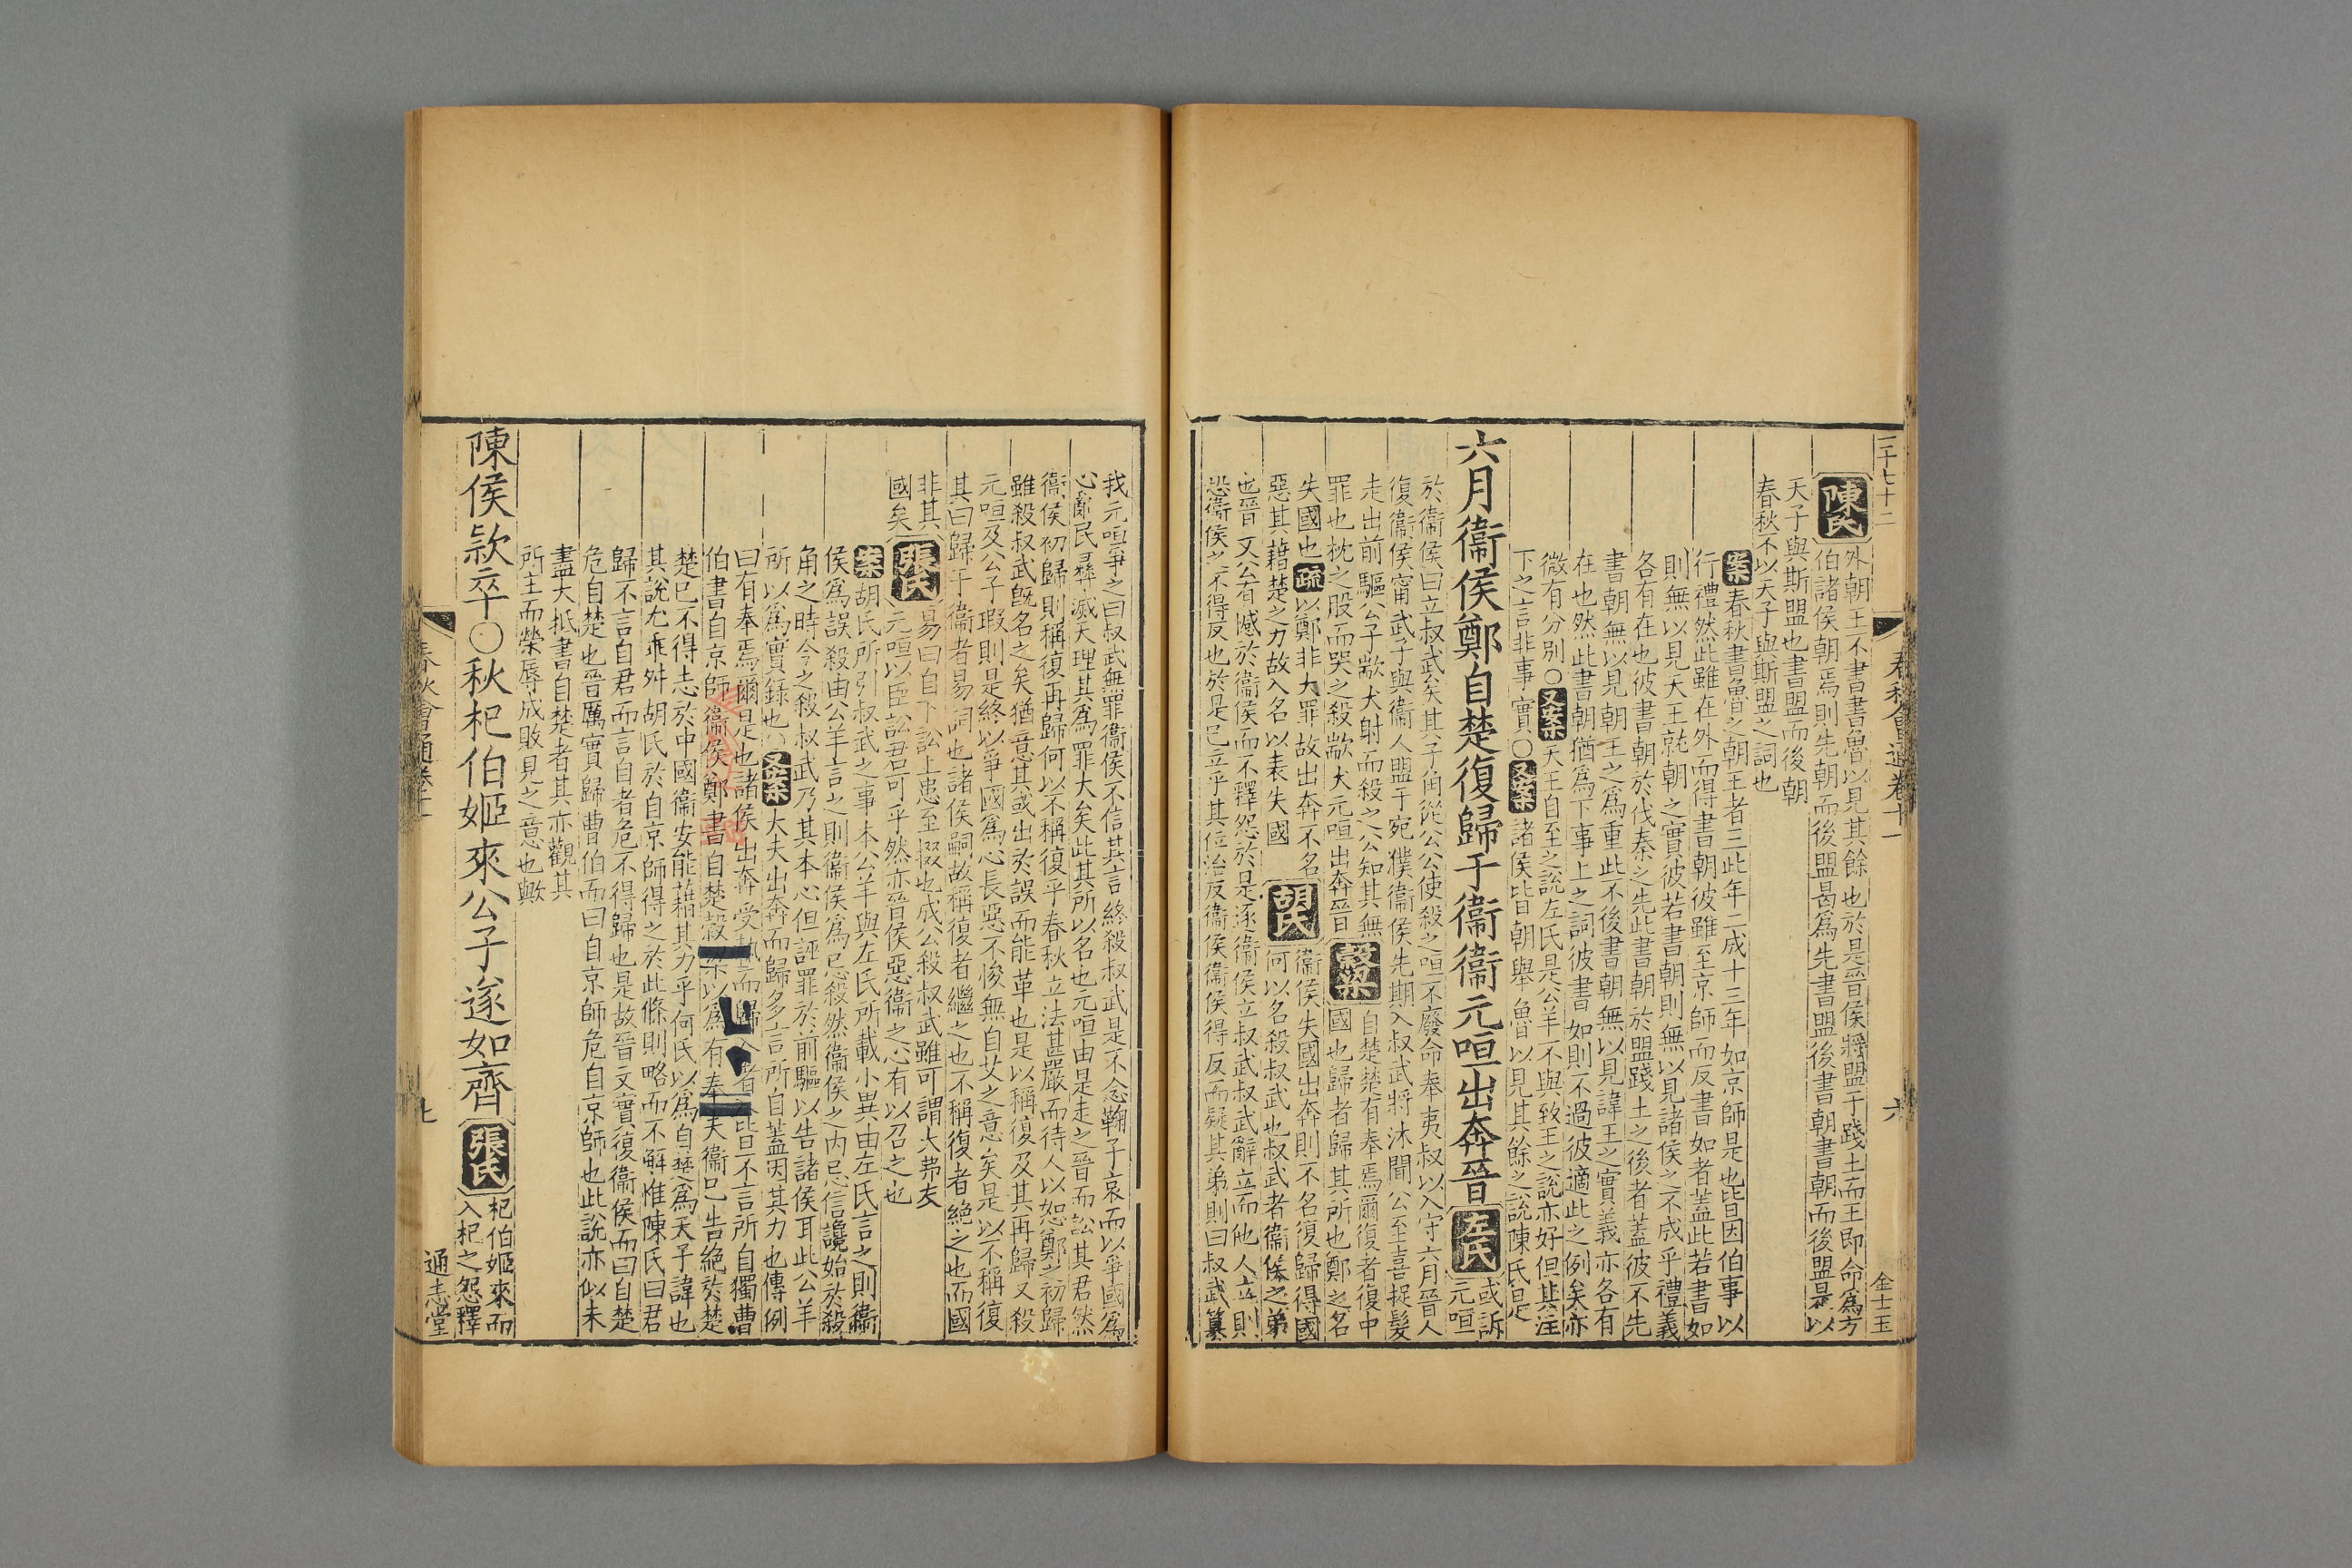 三千七十二
春秋會通卷十一
六
金士玉
陳氏
外朝王不書書魯以見其餘也於是晉侯將盟于踐土而王即命爲方
伯諸侯朝焉則先朝而後盟曷爲先書盟後書朝書朝而後盟是以
天子與斯盟也書盟而後朝
春秋不以天子與斯盟之詞也
案春秋書魯之朝王者三此年二成十三年如京師是也皆因伯事以
行禮然此雖在外而得書朝彼雖至京師而反書如者蓋此若書如
則無以見天王就朝之實彼若書朝則無以見諸侯之不成乎禮義
各有在也彼書朝於伐秦之先此書朝於盟踐土之後者蓋彼不先
書朝無以見朝王之爲重此不後書朝無以見諱王之實義亦各有
在也然此書朝猶爲下事上之詞彼書如則不過彼適此之例矣亦
微有分別○又案天王自至之說左氏是公羊不與致王之說亦好但其注
下之言非事實○又案諸侯皆朝舉魯以見其餘之說陳氏是
六月衞侯鄭自楚復歸于衞衞元咺出奔晉
左氏
或訴
元咺
於衞侯曰立叔武矣其子角從公公使殺之咺不廢命奉夷叔以入守六月晉人
復衞侯甯武子與衞人盟于宛濮衞侯先期入叔武將沐聞公至喜捉髮
走出前驅公子歂犬射而殺之公知其無
罪也枕之股而哭之殺歂犬元咺出奔晉
穀梁
自楚楚有奉焉爾復者復中
國也歸者歸其所也鄭之名
失國也疏以鄭非力罪故出奔不名
惡其藉楚之力故入名以表失國
胡氏
衞侯失國出奔則不名復歸得國
何以名殺叔武也叔武者衞侯之弟
也晉文公有憾於衞侯而不釋怨於是逐衞侯立叔武叔武辭立而他人立則
恐衞侯之不得反也於是己立乎其位治反衞侯衞侯得反而疑其弟則曰叔武篡
我元咺爭之曰叔武無罪衞侯不信其言終殺叔武是不念鞠子哀而以爭國爲
心亂民彝滅天理其爲罪大矣此其所以名也元咺由是走之晉而訟其君然
衞侯初歸則稱復再歸何以不稱復乎春秋立法甚嚴而待人以恕鄭之初歸
雖殺叔武旣名之矣猶意其或出於誤而能革也是以稱復及其再歸又殺
元咺及公子瑕則是終以爭國爲心長惡不悛無自艾之意矣是以不稱復
其曰歸于衞者易詞也諸侯嗣故稱復者繼之也不稱復者絕之也而國
非其
國矣
張氏
易曰自下訟上患至掇也成公殺叔武雖可謂大弗友
元咺以臣訟君可乎然亦晉侯惡衞之心有以召之也
案胡氏所引叔武之事本公羊與左氏所載小異由左氏言之則衞
侯爲誤殺由公羊言之則衞侯爲忌殺然衞侯之內忌信讒始於殺
角之時今之殺叔武乃其本心但誣罪於前驅以告諸侯耳此公羊
所以爲實錄也○又案大夫出奔而歸多言所自蓋因其力也傳例
曰有奉焉爾是也諸侯出奔受執而歸入者皆不言所自獨曹
伯書自京師衞侯鄭書自楚以爲有奉夫衞已告絕於楚
楚已不得志於中國衞安能藉其力乎何氏以爲自楚爲天子諱也
其說尤乖舛胡氏於自京師得之於此條則略而不解惟陳氏曰君
歸不言自君而言自者危不得歸也是故晉文實復衞侯而曰自楚
危自楚也晉厲實歸曹伯而曰自京師危自京師也此說亦似未
盡大抵書自楚者其亦觀其
所主而榮辱成敗見之意也歟
陳侯款卒○秋杞伯姬來公子遂如齊
張氏
杞伯姬來而
入杞之怨釋
春秋會通卷十一
七
通志堂